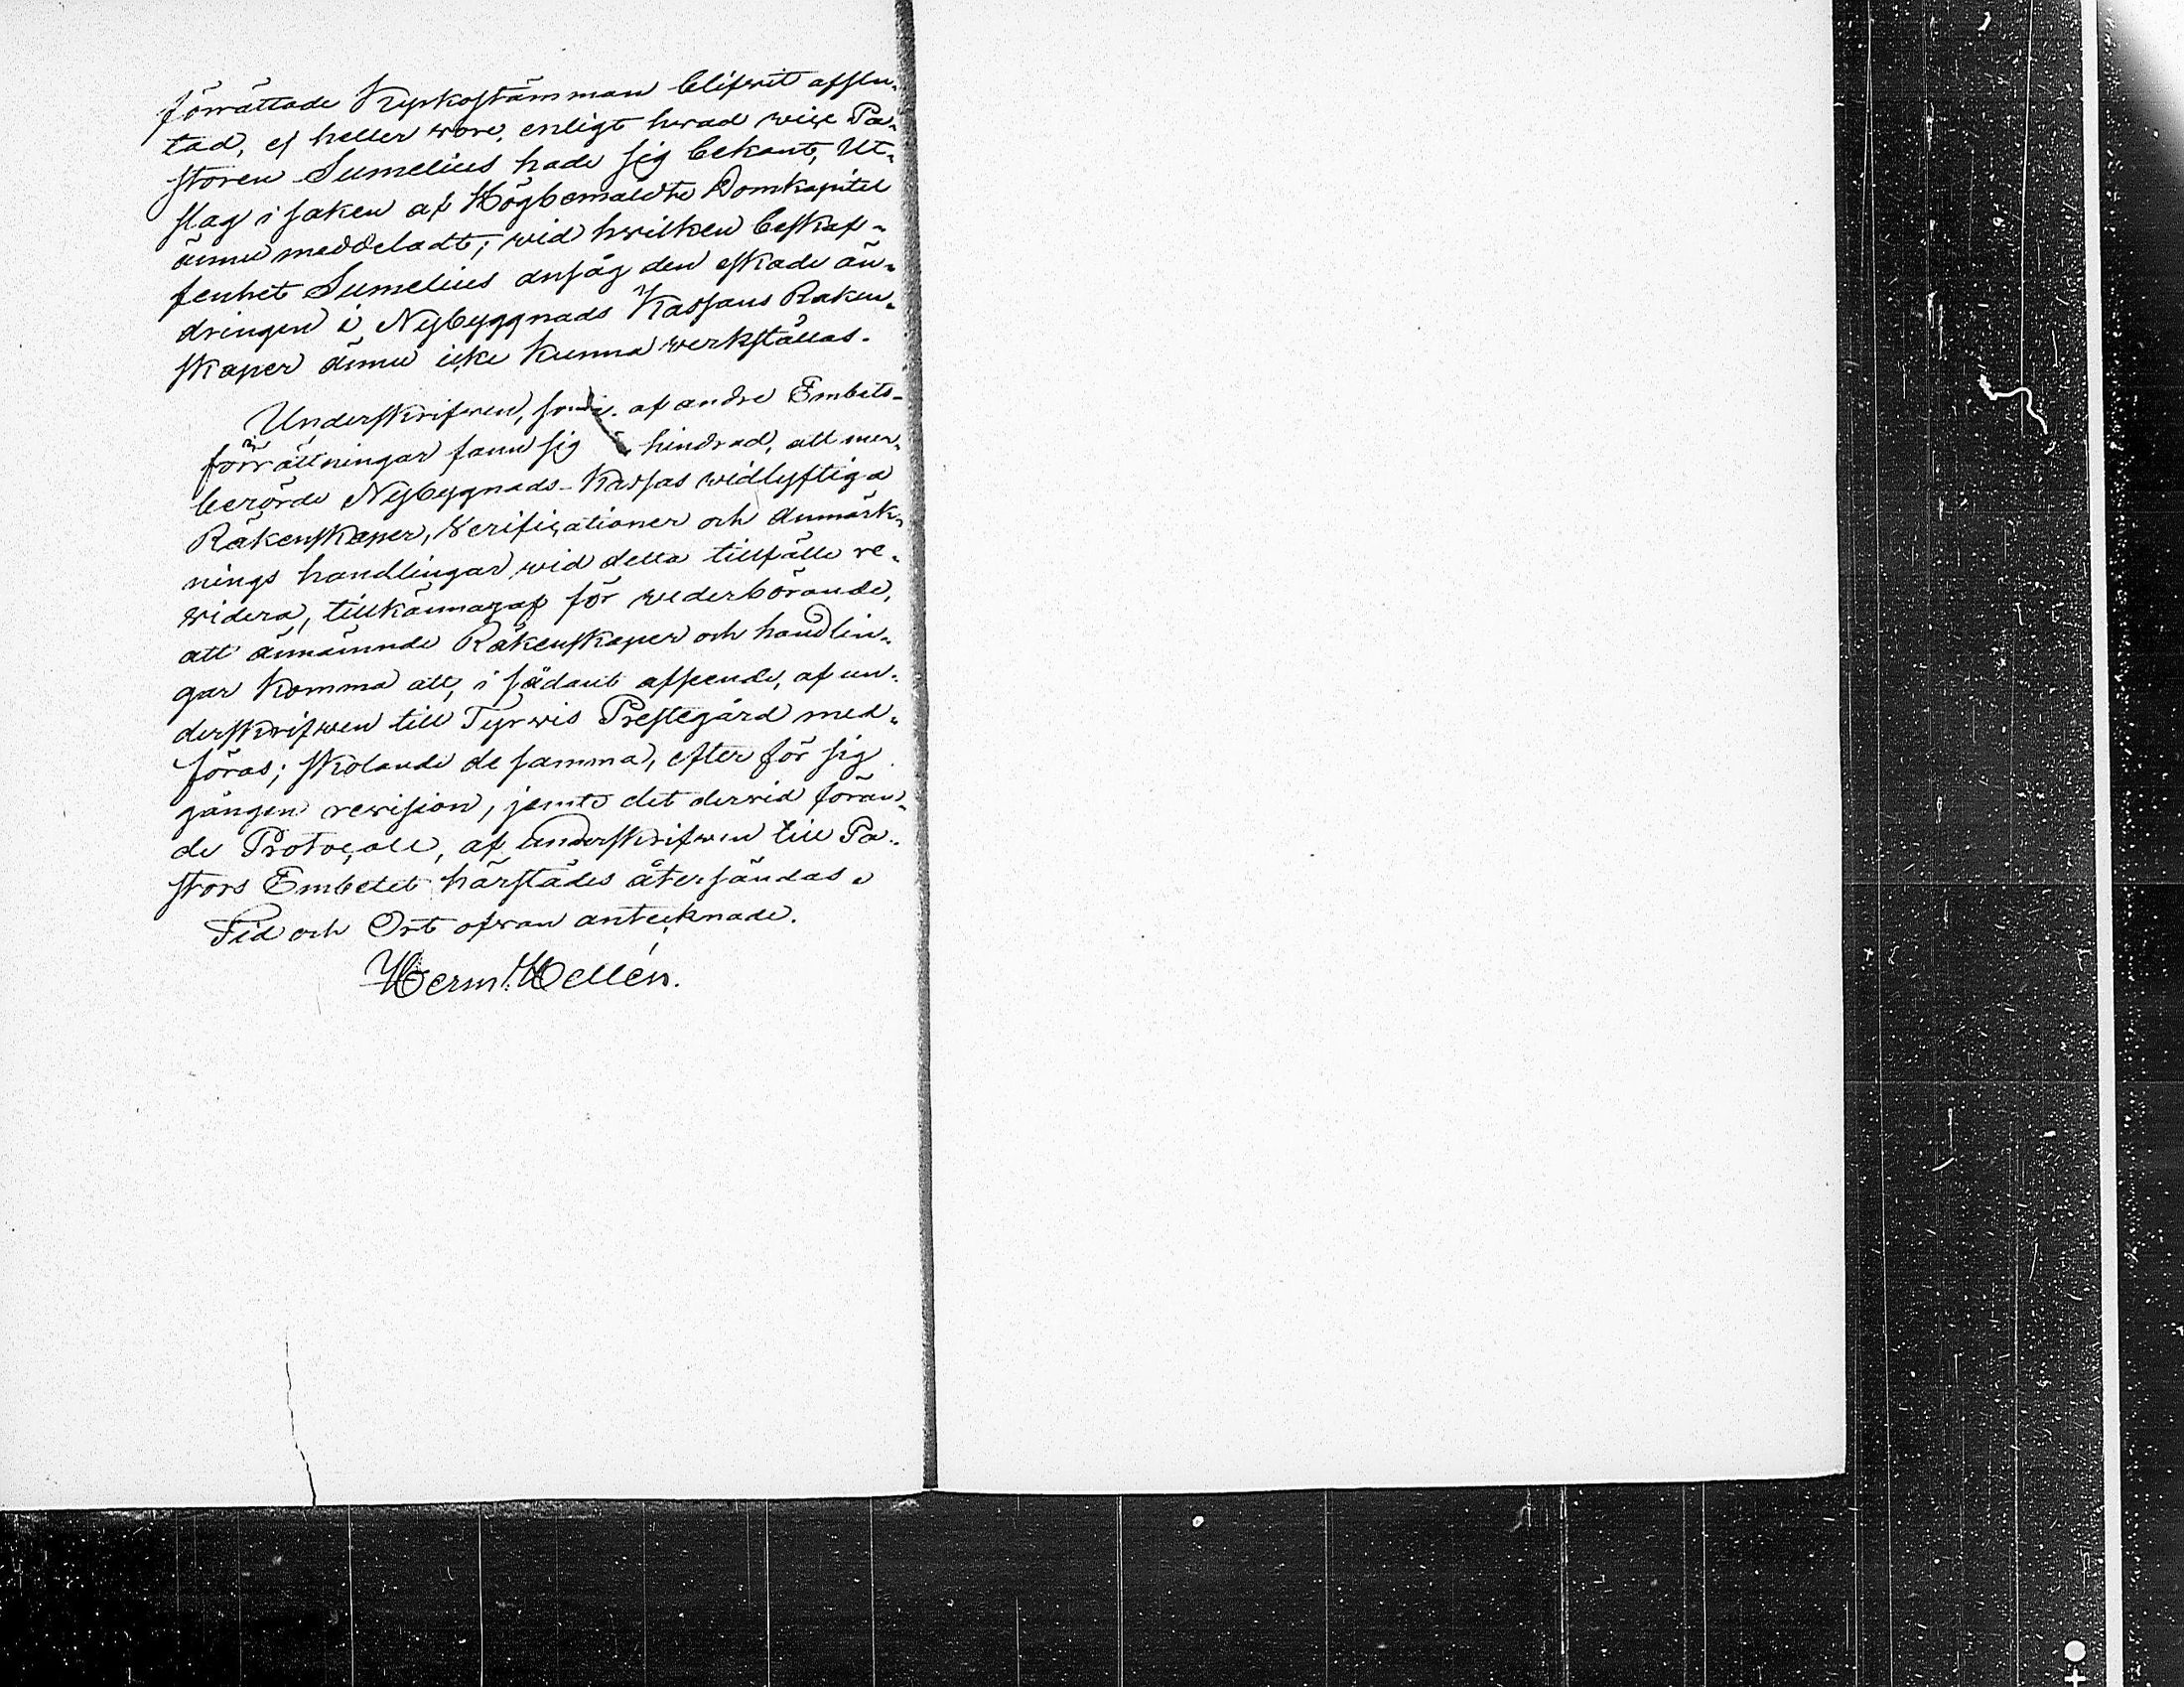 förrättade Kyrkostämman blifwit afslu-
tad, ej heller wore, enligt hwad wice Pa-
storen Sumelius hade sig bekant, Ut-
slag i saken af Högbemäldte Domkapitel
ännu meddeladt; wid hwilken beskaf-
fenhet Sumelius ansåg den eskade än-
dringen i Nybyggnads Kassans Räken-
skaper ännu icke kunna werkställas.
Underskrifwen, som af andre Embets-
förrättningar fann sig hindrad, att mer-
berörde Nybyggnads-Kassas widlyftiga
Räkenskaper, Verificationer och Anmärk-
nings handlingar wid detta tillfälle re-
widera, tillkännagaf för wederbörande,
att ännämnde Räkenskaper och handlin-
gar komma att, i sådant afseende, af un-
derskrifwen till Tyrwis Prestegård med-
föras; skolande de samma, efter för sig
gången revision, jemte det derwid föran-
de Protocoll, af underskrifwen till Pa-
stors Embetet härstädes återsändas.
Tid och Ort ofwan antecknade.
Herm. Hellén.